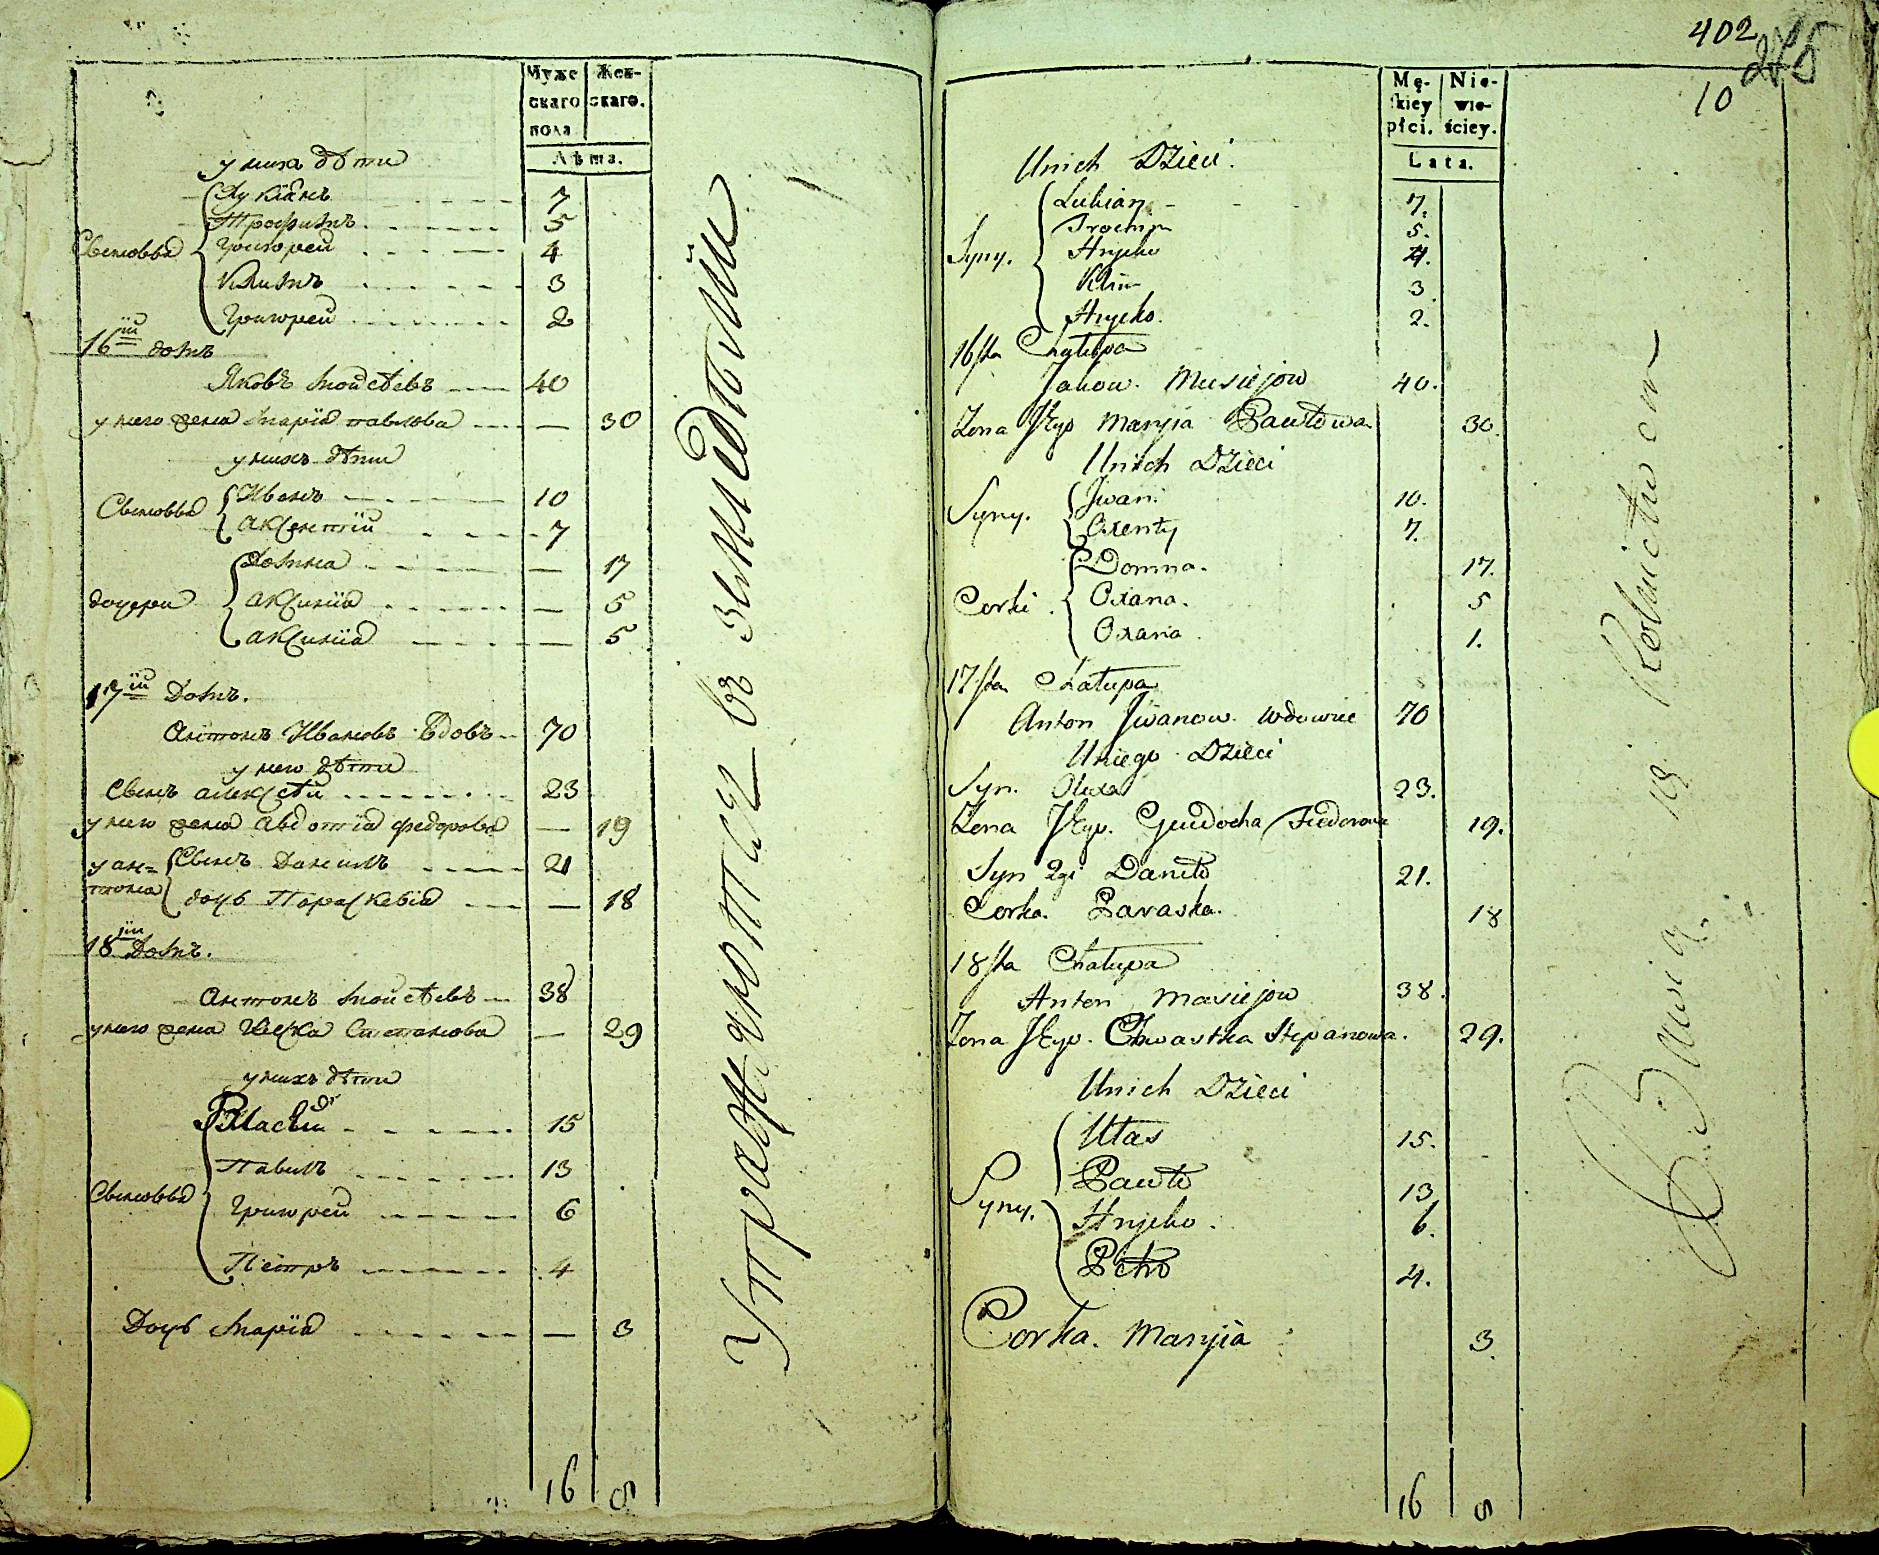 Муже
скаго
пола
Жен-
скаго.
Лѣта.
у нихъ дѣти
Сыновья
Лукіанъ 7
Трофимъ 5
Григорей 4
Климъ 3
Григорей 2
16ій домъ
Яковъ Моисѣевъ 40
у него жена Марія Павлова — 30
у нихъ дѣти
Сыновья
Иванъ 10
Аксентій 7
дочери
Домна — 17
Аксинія — 5
Аксинія — 5
17ій Домъ.
Антонъ Ивановъ вдовъ 70
у него дѣти
Сынъ Алексѣй 23
у него жена Авдотія Федорова — 19
у Ан=
тона
Сынъ Данилъ 21
дочь Параскевія — 18
18ій Домъ.
Антонъ Моисѣевъ 38
у него жена Степанова — 29
у нихъ дѣти
Сыновья
Власій 15
Павилъ 13
Григорей 6
Петръ 4
Дочь Марія — 3
16 8
Упражняются въ земледѣліи
402
275
10
Mę-
skiey
płci.
Nie-
wie-
ściey.
Lata.
Unich Dzieci.
Syny.
Lukian 7.
Trochim 5.
Hryćko 4.
Klim 3
Hryćko. 2.
16sta Chałupa
Jakow. Musiejow 40.
Żona Jego Maryia Pawłowa 30.
Unich Dzieci
Syny.
Jwan. 10.
Oxenty 7.
Corki.
Domna. 17.
Oxana. 5
Oxana 1.
17sta Chałupa
Anton Jwanow. wdowiec 70
Uniego Dzieci
Syn. Olexa 23.
Żona Jego. Fiedorowa 19.
Syn 2gi Daniło 21.
Corka. Paraska. 18
18sta Chałupa
Anton Mosiejow 38.
Żona Jego. Chwastka Stepanowa. 29.
Unich Dzieci
Syny.
Ułas 15.
Pawło 13
Hryćko. 6.
Petro 4.
Corka. Maryia 3.
16 8
Bawią się Rolnictwem